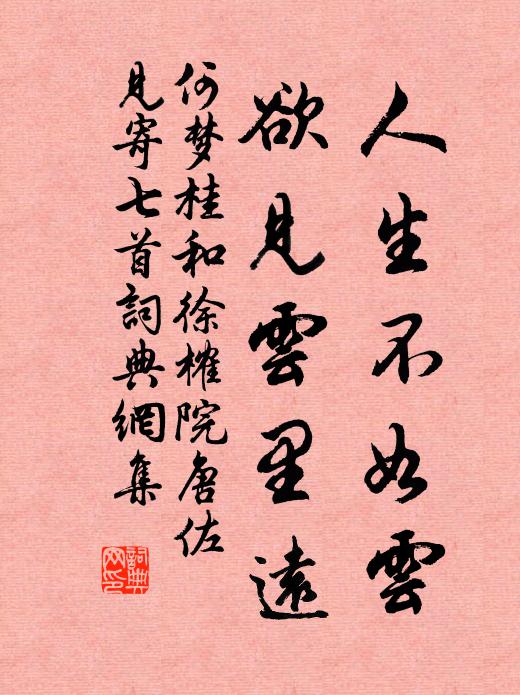 人生不如雲
欲見雲里遠
何梦桂和徐榷院唐佐
見寄七首詞典網集
詞典網印